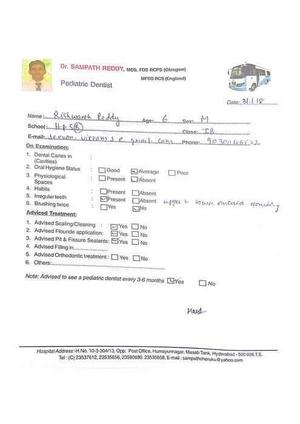 Dr. SAMPATH REDDY, MDS, FDS RCPS (Glasgow)
MFDS RCS (England)
Pediatric Dentist
Date: 31/1/18
Name: Rishwanth Reddy Age: 6 Sex: M
School: H.P.S Class: IB
E-mail: Phone:
On Examination:
1. Dental Caries in :
(Cavities)
2. Oral Hygiene Status : Good Average Poor
3. Physiological : Present Absent
Spaces
4. Habits : Present Absent
5. Irregular teeth : Present Absent upper & lower anterior crowding
6. Brushing twice : Yes No
Adviced Treatment:
1. Advised Scaling/Cleaning : Yes No
2. Advised Flouride application: Yes No
3. Advised Pit & Fissure Sealents: Yes No
4. Advised Filling in
5. Advised Orthodontic treatment : Yes No
6. Others:
Note: Advised to see a pediatric dentist every 3-6 months Yes No
Hospital Address : H.No. 10-3-304/13, Opp: Post Office, Humayunnagar, Masab Tank, Hyderabad - 500 028.T.S.
Tel : (C) 23537612, 23535656, 23590690. 23535658, E-mail : sampathcheruku@yahoo.com